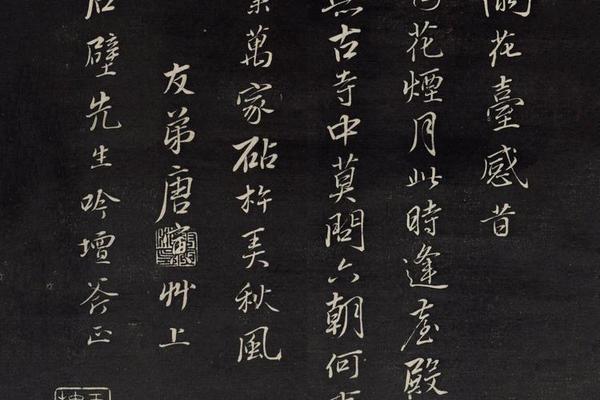 花臺感昔
花煙月此時逢臺殿
古寺中莫問六朝何
萬家砧杵美秋風
友弟唐寅艸上
石壁先生吟壇荅正